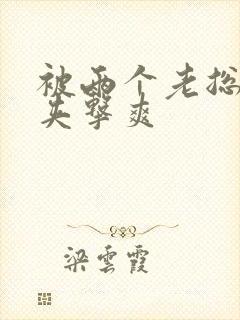 被两个老总
夹击爽
梁云霞